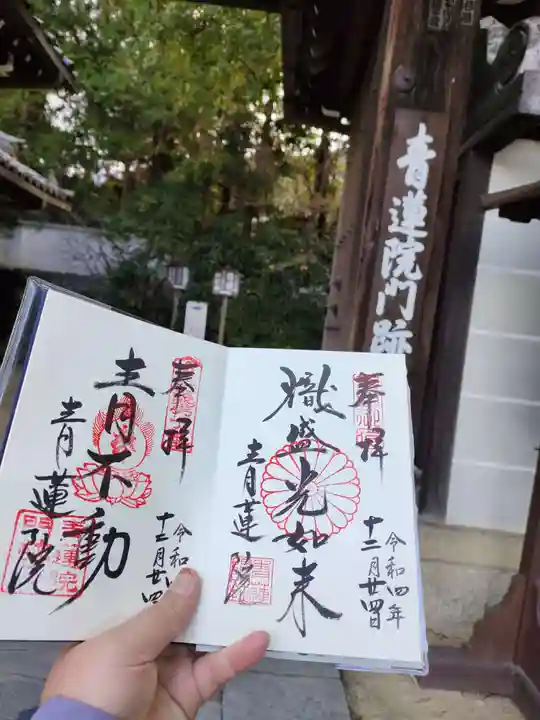 青蓮院門跡
奉拝
熾盛光如来
青蓮院
令和四年
十二月廿四日
奉拝
青不動
青蓮院
令和四
十二月廿四